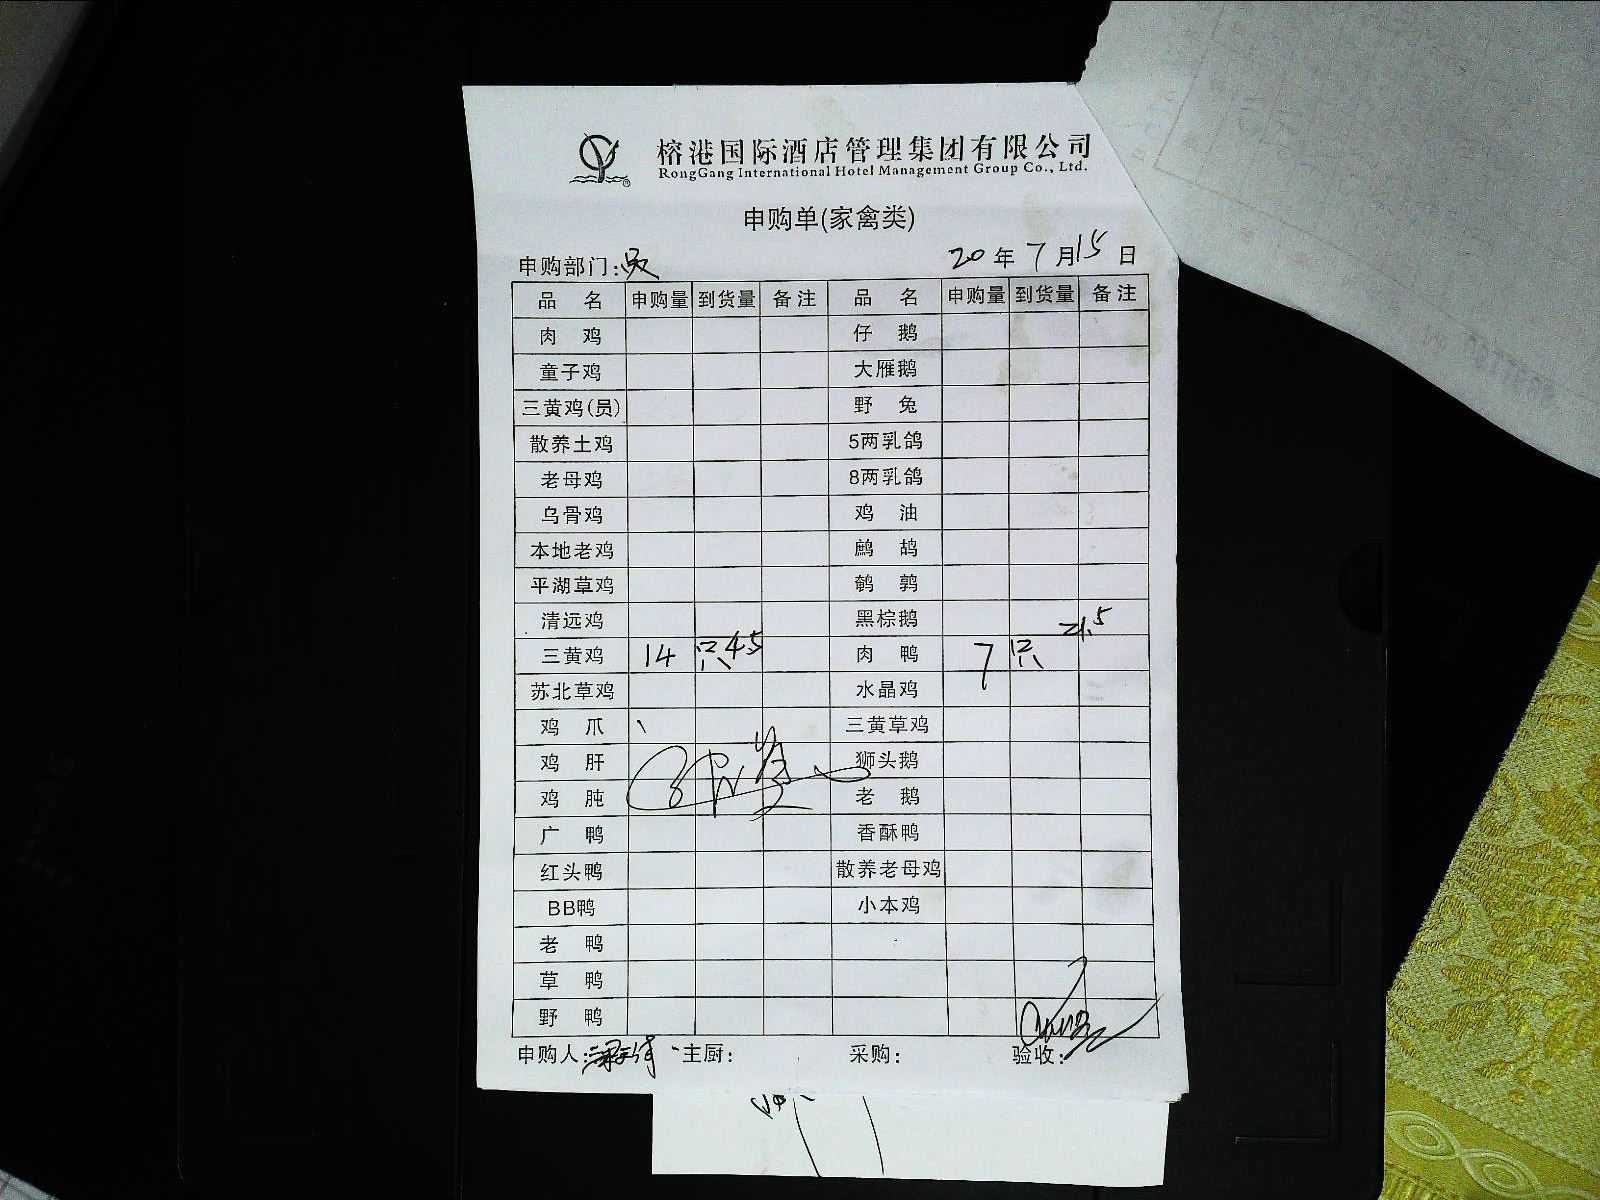 榕港国际酒店管理集团有限公司
RongGang International Hotel Management Group Co., Ltd.
申购单(家禽类)
申购部门: 20年7月15日
品名 申购量 到货量 备注 品名 申购量 到货量 备注
肉鸡 仔鹅
童子鸡 大雁鹅
三黄鸡(员) 野兔
散养土鸡 5两乳鸽
老母鸡 8两乳鸽
乌骨鸡 鸡油
本地老鸡 鹧鸪
平湖草鸡 鹌鹑
清远鸡 黑棕鹅
三黄鸡 14 只 45 肉鸭 7 只 21.5
苏北草鸡 水晶鸡
鸡爪 三黄草鸡
鸡肝 狮头鹅
鸡肫 老鹅
广鸭 香酥鸭
红头鸭 散养老母鸡
BB鸭 小本鸡
老鸭
草鸭
野鸭
申购人: 主厨: 采购: 验收: